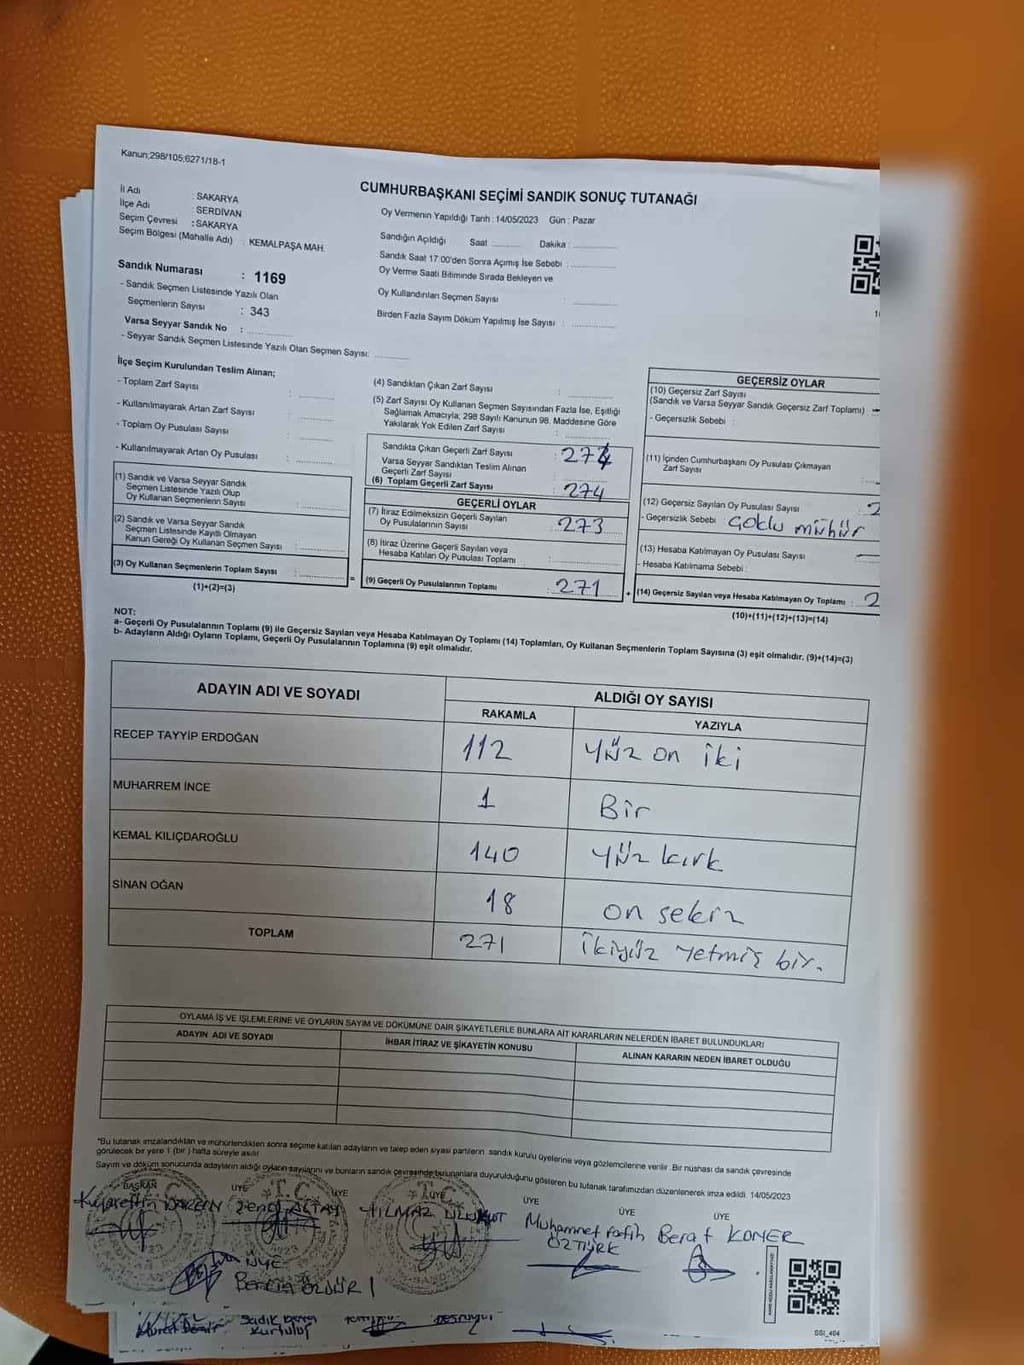 Kanun;298/105;6271/18-1
CUMHURBAŞKANI SEÇİMİ SANDIK SONUÇ TUTANAĞI
İl Adı : SAKARYA
İlçe Adı : SERDİVAN
Seçim Çevresi : SAKARYA
Seçim Bölgesi (Mahalle Adı) : KEMALPAŞA MAH.
Sandık Numarası : 1169
- Sandık Seçmen Listesinde Yazılı Olan
Seçmenlerin Sayısı : 343
Varsa Seyyar Sandık No :
- Seyyar Sandık Seçmen Listesinde Yazılı Olan Seçmen Sayısı:
Oy Vermenin Yapıldığı Tarih : 14/05/2023 Gün : Pazar
Sandığın Açıldığı Saat Dakika :
Sandık Saat 17:00'den Sonra Açımış İse Sebebi :
Oy Verme Saati Bitiminde Sırada Bekleyen ve
Oy Kullandırılan Seçmen Sayısı :
Birden Fazla Sayım Döküm Yapılmış İse Sayısı :
İlçe Seçim Kurulundan Teslim Alınan;
- Toplam Zarf Sayısı :
- Kullanılmayarak Artan Zarf Sayısı :
- Toplam Oy Pusulası Sayısı :
- Kullanılmayarak Artan Oy Pusulası :
(1) Sandık ve Varsa Seyyar Sandık
Seçmen Listesinde Yazılı Olup
Oy Kullanan Seçmenlerin Sayısı :
(2) Sandık ve Varsa Seyyar Sandık
Seçmen Listesinde Kayıtlı Olmayan
Kanun Gereği Oy Kullanan Seçmen Sayısı :
(3) Oy Kullanan Seçmenlerin Toplam Sayısı : =
(1)+(2)=(3)
(4) Sandıktan Çıkan Zarf Sayısı :
(5) Zarf Sayısı Oy Kullanan Seçmen Sayısından Fazla İse, Eşitliği
Sağlamak Amacıyla; 298 Sayılı Kanunun 98. Maddesine Göre
Yakılarak Yok Edilen Zarf Sayısı :
Sandıkta Çıkan Geçerli Zarf Sayısı : 274
Varsa Seyyar Sandıktan Teslim Alınan
Geçerli Zarf Sayısı :
(6) Toplam Geçerli Zarf Sayısı : 274
GEÇERLİ OYLAR
(7) İtiraz Edilmeksizin Geçerli Sayılan
Oy Pusulalarının Sayısı : 273
(8) İtiraz Üzerine Geçerli Sayılan veya
Hesaba Katılan Oy Pusulası Toplamı :
(9) Geçerli Oy Pusulalarının Toplamı : 271 +
GEÇERSİZ OYLAR
(10) Geçersiz Zarf Sayısı
(Sandık ve Varsa Seyyar Sandık Geçersiz Zarf Toplamı) : -
- Geçersizlik Sebebi :
(11) İçinden Cumhurbaşkanı Oy Pusulası Çıkmayan
Zarf Sayısı :
(12) Geçersiz Sayılan Oy Pusulası Sayısı : 2
- Geçersizlik Sebebi : Çoklu mühür
(13) Hesaba Katılmayan Oy Pusulası Sayısı : -
- Hesaba Katılmama Sebebi :
(14) Geçersiz Sayılan veya Hesaba Katılmayan Oy Toplamı : 2
(10)+(11)+(12)+(13)=(14)
NOT:
a- Geçerli Oy Pusulalarının Toplamı (9) ile Geçersiz Sayılan veya Hesaba Katılmayan Oy Toplamı (14) Toplamları, Oy Kullanan Seçmenlerin Toplam Sayısına (3) eşit olmalıdır. (9)+(14)=(3)
b- Adayların Aldığı Oyların Toplamı, Geçerli Oy Pusulalarının Toplamına (9) eşit olmalıdır.
ADAYIN ADI VE SOYADI ALDIĞI OY SAYISI
RAKAMLA YAZIYLA
RECEP TAYYİP ERDOĞAN 112 Yüz on iki
MUHARREM İNCE 1 Bir
KEMAL KILIÇDAROĞLU 140 Yüz kırk
SİNAN OĞAN 18 on sekiz
TOPLAM 271 İkiyüz Yetmiş bir.
OYLAMA İŞ VE İŞLEMLERİNE VE OYLARIN SAYIM VE DÖKÜMÜNE DAİR ŞİKAYETLERLE BUNLARA AİT KARARLARIN NELERDEN İBARET BULUNDUKLARI
ADAYIN ADI VE SOYADI İHBAR İTİRAZ VE ŞİKAYETİN KONUSU ALINAN KARARIN NEDEN İBARET OLDUĞU
*Bu tutanak imzalandıktan ve mühürlendikten sonra seçime katılan adayların ve talep eden siyasi partilerin sandık kurulu üyelerine veya gözlemcilerine verilir. Bir nüshası da sandık çevresinde
görülecek bir yere 1 (bir) hafta süreyle asılır
Sayım ve döküm sonucunda adayların aldığı oyların sayılarını ve bunların sandık çevresinde bulunanlara duyurulduğunu gösteren bu tutanak tarafımızdan düzenlenerek imza edildi. 14/05/2023
BAŞKAN ÜYE ÜYE ÜYE ÜYE ÜYE
ALTAY YILMAZ Muhammet Fatih ÖZTÜRK Berat KOMER
ÜYE
T.C.
Murat Demir Sadık
Kurtuluş
SSI_404